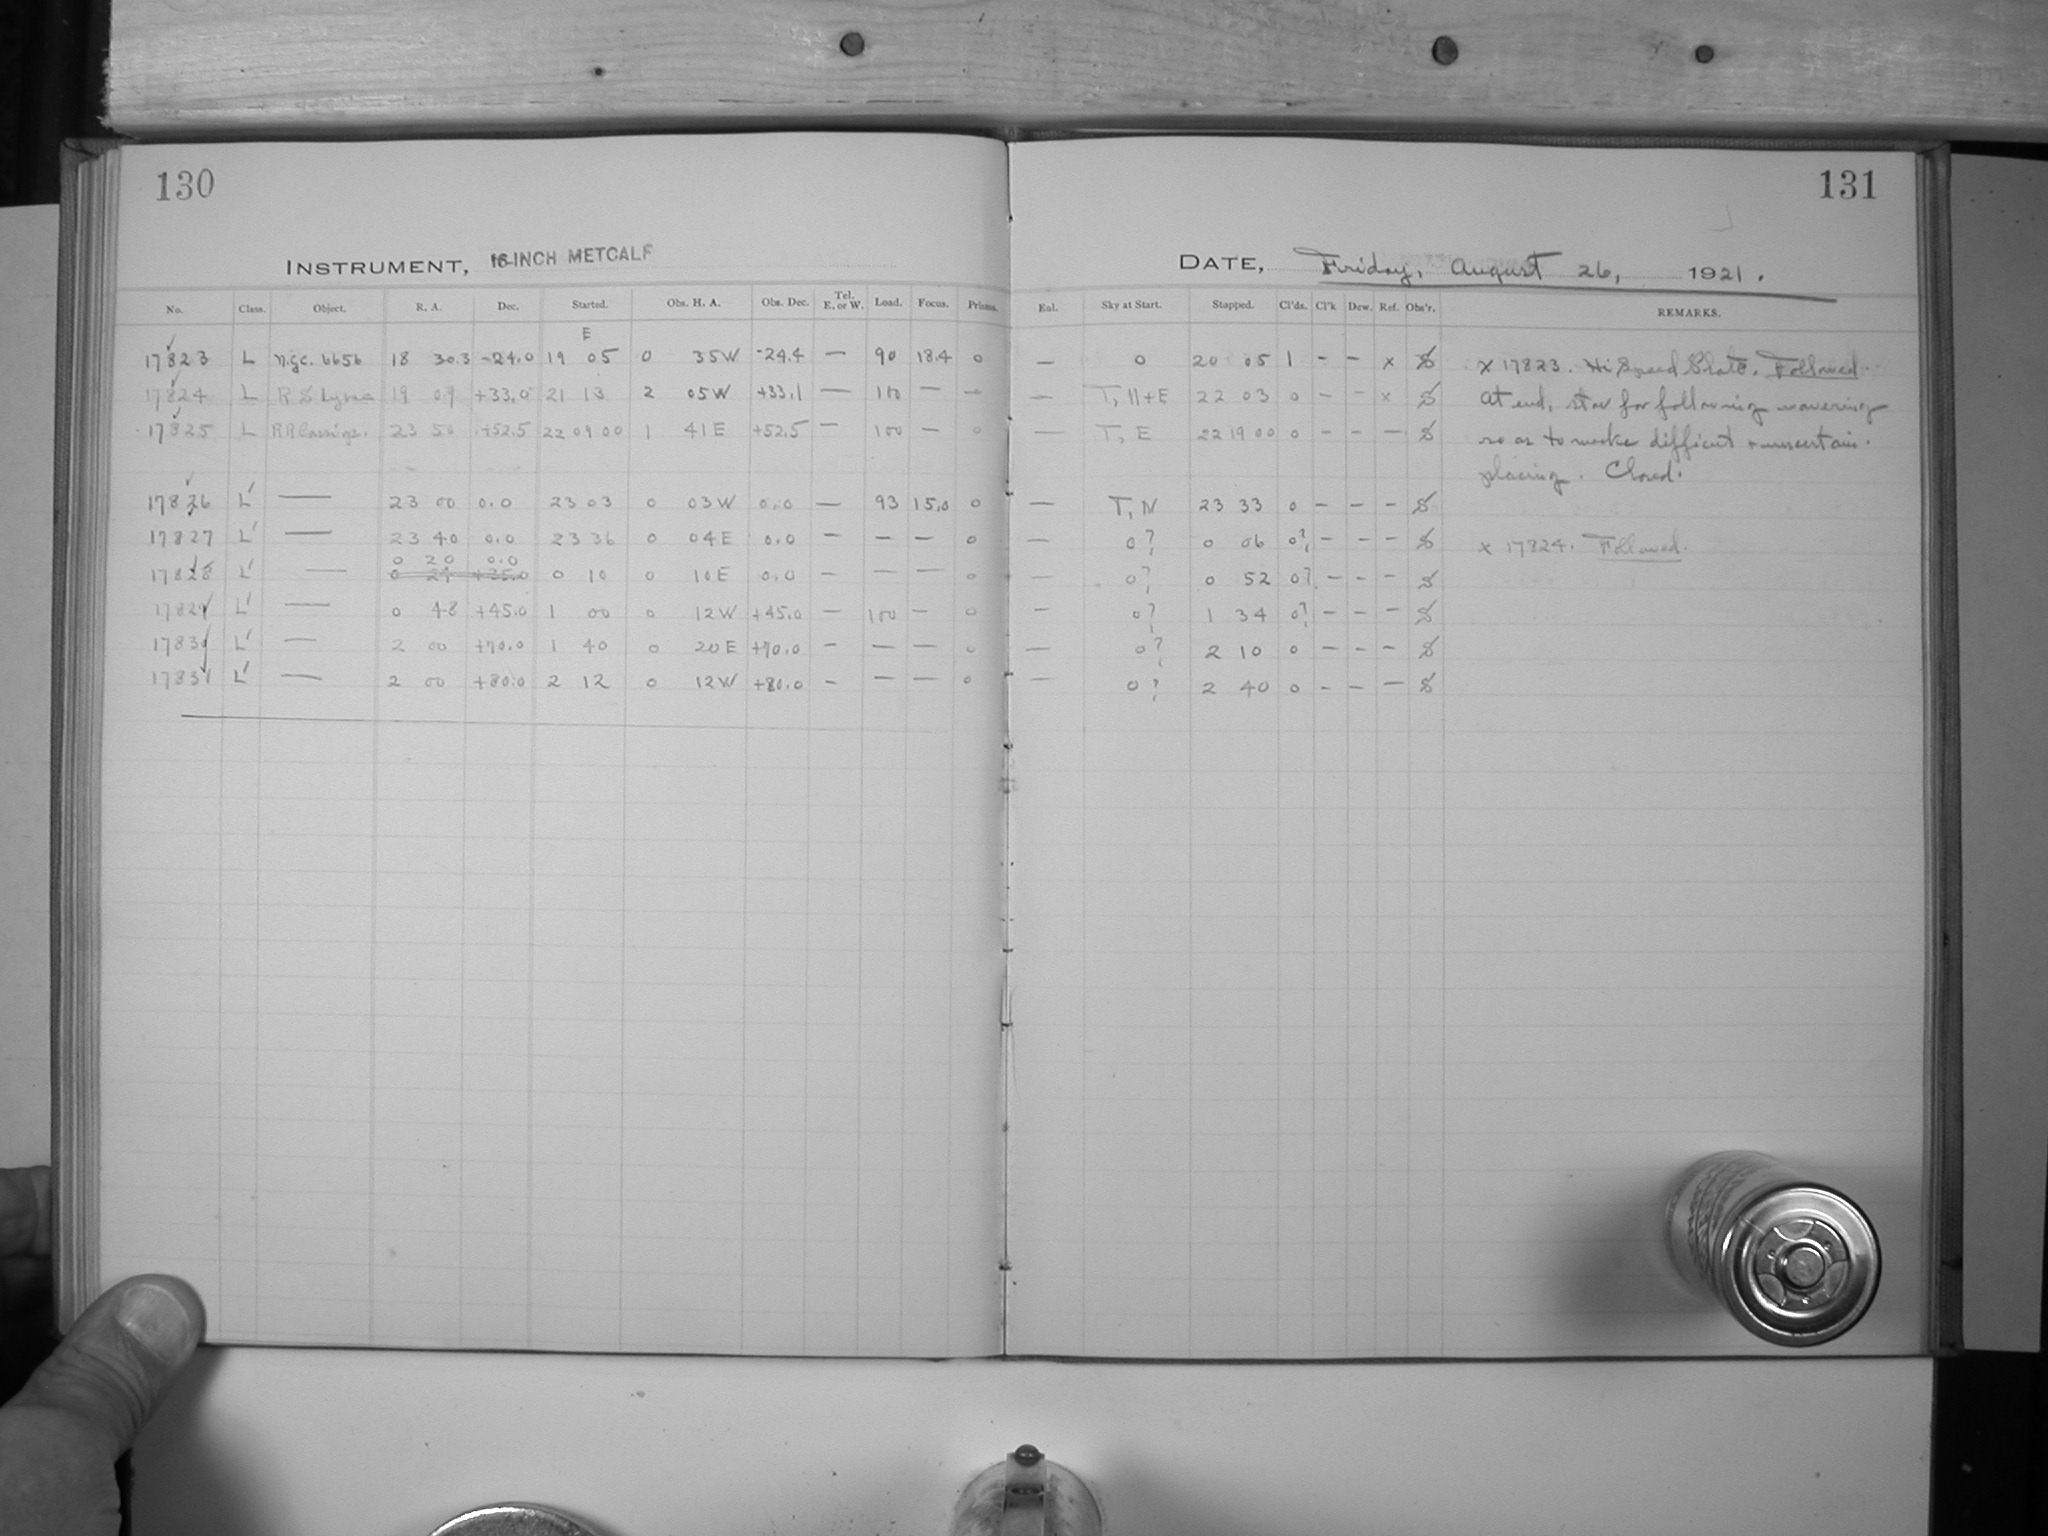 130
131
INSTRUMENT, 16-INCH METCALF
DATE, Friday, August 26, 1921.
No. Class. Object. R. A. Dec. Started. Obs. H. A. Obs. Dec. Tel. E. or W. Load. Focus. Prisms. Enl. Sky at Start. Stopped. Cl'ds. Cl'k Dew. Ref. Obs'r. REMARKS.
E
17823 L N.g.c. 6656 18 30.3 -24.0 19 05 0 35W -24.4 — 90 18.4 0 — 0 20 05 1 - - x S x 17823. Hi Speed Plate. Followed.
17824 L R S Lyrae 19 09 +33.0 21 13 2 05W +33.1 — 100 — — — T, N+E 22 03 0 - - x S At end, star for following wavering
17825 L RR Cassiop. 23 50 +52.5 22 09 00 1 41E +52.5 — 100 — 0 — T, E 22 19 00 0 - - — S so as to make difficult + uncertain
placing. Closed.
17826 L' — 23 00 0.0 23 03 0 03W 0.0 — 93 15.0 0 — T, N 23 33 0 - - - S
17827 L' — 23 40 0.0 23 36 0 04E 0.0 — — — 0 — 0? 0 06 0? - - - S x 17824. Followed.
0 20 0.0
17828 L' — 0 24 +35.0 0 10 0 10E 0.0 — — — 0 — 0? 0 52 0? - - - S
17829 L' — 0 48 +45.0 1 00 0 12W +45.0 — 100 — 0 — 0? 1 34 0? - - - S
17830 L' — 2 00 +70.0 1 40 0 20E +70.0 — — — 0 — 0? 2 10 0 - - - S
17831 L' — 2 00 +80.0 2 12 0 12W +80.0 — — — 0 — 0? 2 40 0 - - — S